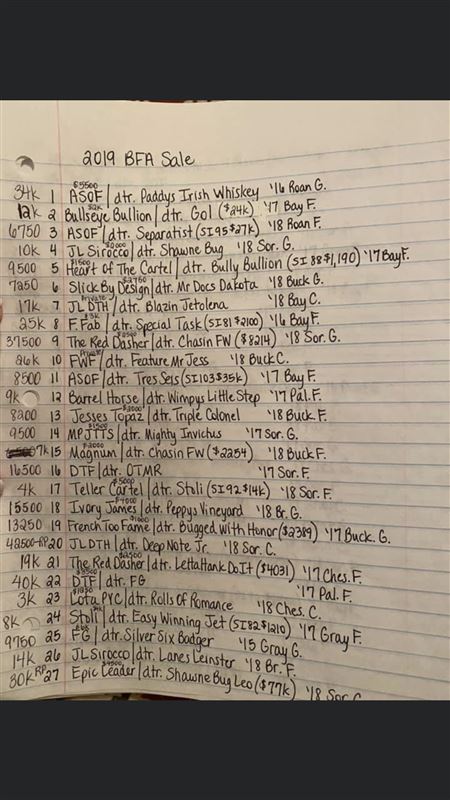 2019 BFA Sale
34k 1 ASOF $5500 | dtr. Paddys Irish Whiskey '16 Roan G.
12k 2 Bullseye Bullion | dtr. Gol ($24k) '17 Bay F.
6750 3 ASOF | dtr. Separatist (SI95 $27k) '18 Roan F.
10k 4 JL Sirocco | dtr. Shawne Bug '18 Sor. G.
9500 5 Heart Of The Cartel $1500 | dtr. Bully Bullion (SI 88 $1,190) '17 Bay F.
7250 6 Slick By Design | dtr. Mr Docs Dakota '18 Buck G.
17k 7 JLDTH Private | dtr. Blazin Jetolena '18 Bay C.
25k 8 F.Fab $3k | dtr. Special Task (SI81 $2100) '16 Bay F.
37500 9 The Red Dasher $2500 | dtr. Chasin FW ($8214) '18 Sor. G.
26k 10 FWF Private | dtr. Feature Mr Jess '18 Buck C.
8500 11 ASOF | dtr. Tres Seis (SI103 $35k) '17 Bay F.
9k 12 Barrel Horse | dtr. Wimpys Little Step '17 Pal. F.
8200 13 Jesses Topaz | dtr. Triple Colonel '18 Buck. F.
9500 14 MPJTTS $1500 | dtr. Mighty Invictus '17 Sor. G.
7k 15 Magnum $2000 | dtr. Chasin FW ($2254) '18 Buck F.
16500 16 DTF | dtr. CTMR '17 Sor. F.
4k 17 Teller Cartel | dtr. Stoli (SI92 $14k) '18 Sor. F.
15500 18 Ivory James $4000 | dtr. Peppys Vineyard '18 Br. G.
13250 19 French Too Fame | dtr. Bugged With Honor ($2389) '17 Buck. G.
42500-RP 20 JLDTH | dtr. Deep Note Jr. '18 Sor. C.
19k 21 The Red Dasher $2500 | dtr. Letta Hank Do It ($4031) '17 Ches. F.
40k 22 DTF | dtr. FG '17 Pal. F.
3k 23 Lota PYC | dtr. Rolls Of Romance '18 Ches. C.
8k 24 Stoli | dtr. Easy Winning Jet (SI82 $1210) '17 Gray F.
9750 25 FG | dtr. Silver Six Badger '15 Gray G.
14k 26 JL Sirocco | dtr. Lanes Leinster '18 Br. F.
30k RP 27 Epic Leader | dtr. Shawne Bug Leo ($77k) '18 Sor.